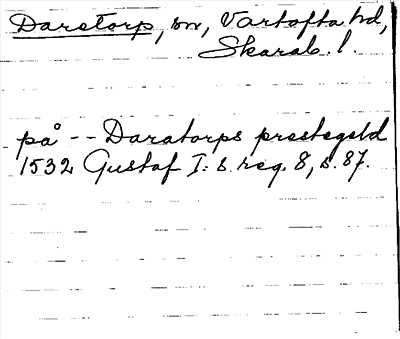 Daretorp, sn, Vartofta hd,
Skarab. l.
på -- Daratorps prestegeld
1532 Gustaf I:s reg. 8, s. 87.